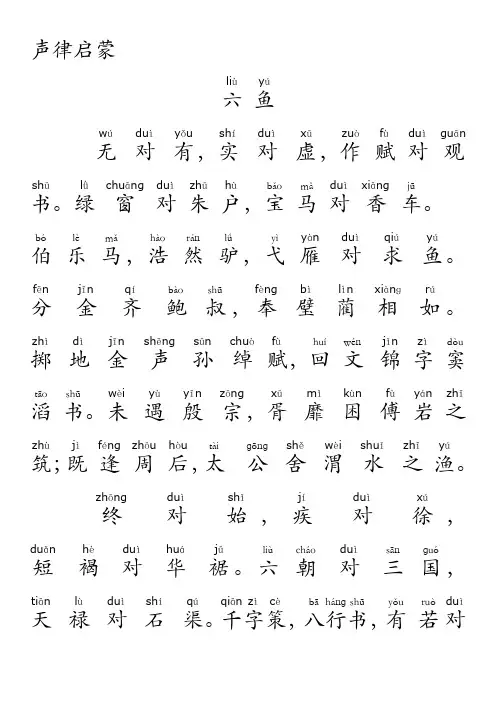 声律启蒙
liù yú
六鱼
wú duì yǒu shí duì xū zuò fù duì guān
无对有，实对虚，作赋对观
shū lǜ chuāng duì zhū hù bǎo mǎ duì xiāng jū
书。绿窗对朱户，宝马对香车。
bó lè mǎ hào rán lǘ yì yàn duì qiú yú
伯乐马，浩然驴，弋雁对求鱼。
fēn jīn qí bào shū fèng bì lìn xiàng rú
分金齐鲍叔，奉璧蔺相如。
zhì dì jīn shēng sūn chuò fù huí wén jǐn zì dòu
掷地金声孙绰赋，回文锦字窦
tāo shū wèi yù yīn zōng xū mí kùn fù yán zhī
滔书。未遇殷宗，胥靡困傅岩之
zhù jì féng zhōu hòu tài gōng shě wèi shuǐ zhī yú
筑；既逢周后，太公舍渭水之渔。
zhōng duì shǐ jí duì xú
终对始，疾对徐，
duǎn hè duì huá jū liù cháo duì sān guó
短褐对华裾。六朝对三国，
tiān lù duì shí qú qiān zì cè bā háng shū yǒu ruò duì
天禄对石渠。千字策，八行书，有若对